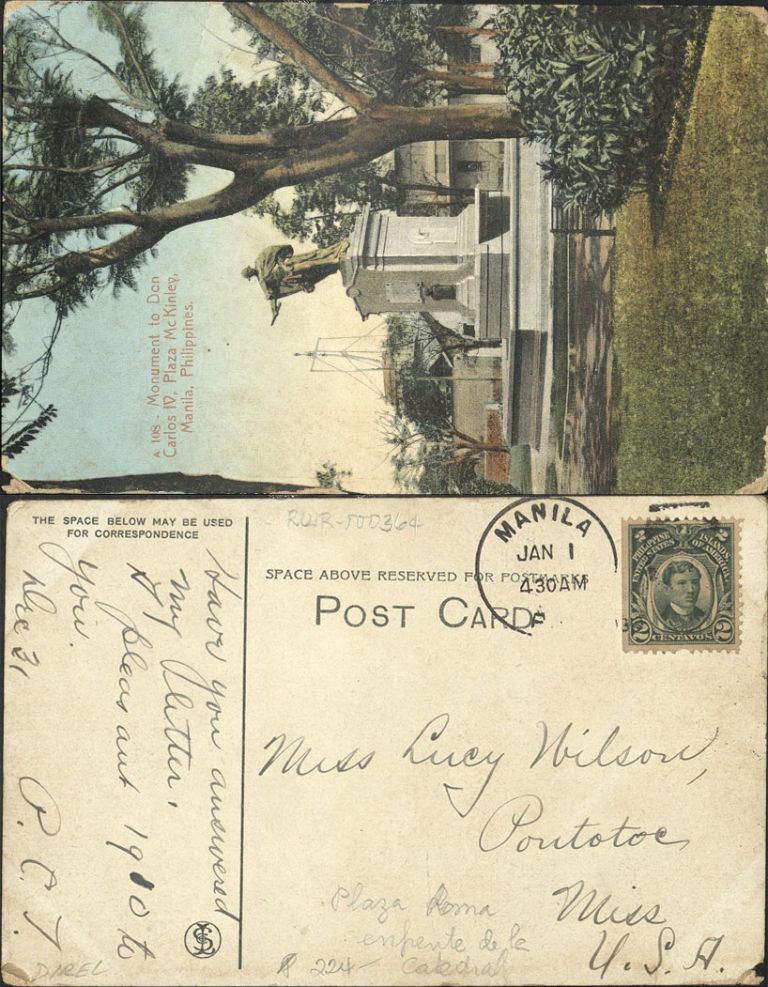 A 108. Monument to Don
Carlos IV. Plaza McKinley,
Manila, Philippines.
THE SPACE BELOW MAY BE USED
FOR CORRESPONDENCE
Have you answered
my letter,
A pleasant 1910 to
you.
Dec 31
P. C. T.
DAREL
RWR-000364
SPACE ABOVE RESERVED FOR POSTMARKS
POST CARD
MANILA
JAN 1
430 AM
PHILIPPINE ISLANDS
UNITED STATES OF AMERICA
2 2
2 CENTAVOS 2
Miss Lucy Wilson,
Pontotoc
Miss
U. S. A.
Plaza Roma
enfrente de la
Catedral
224